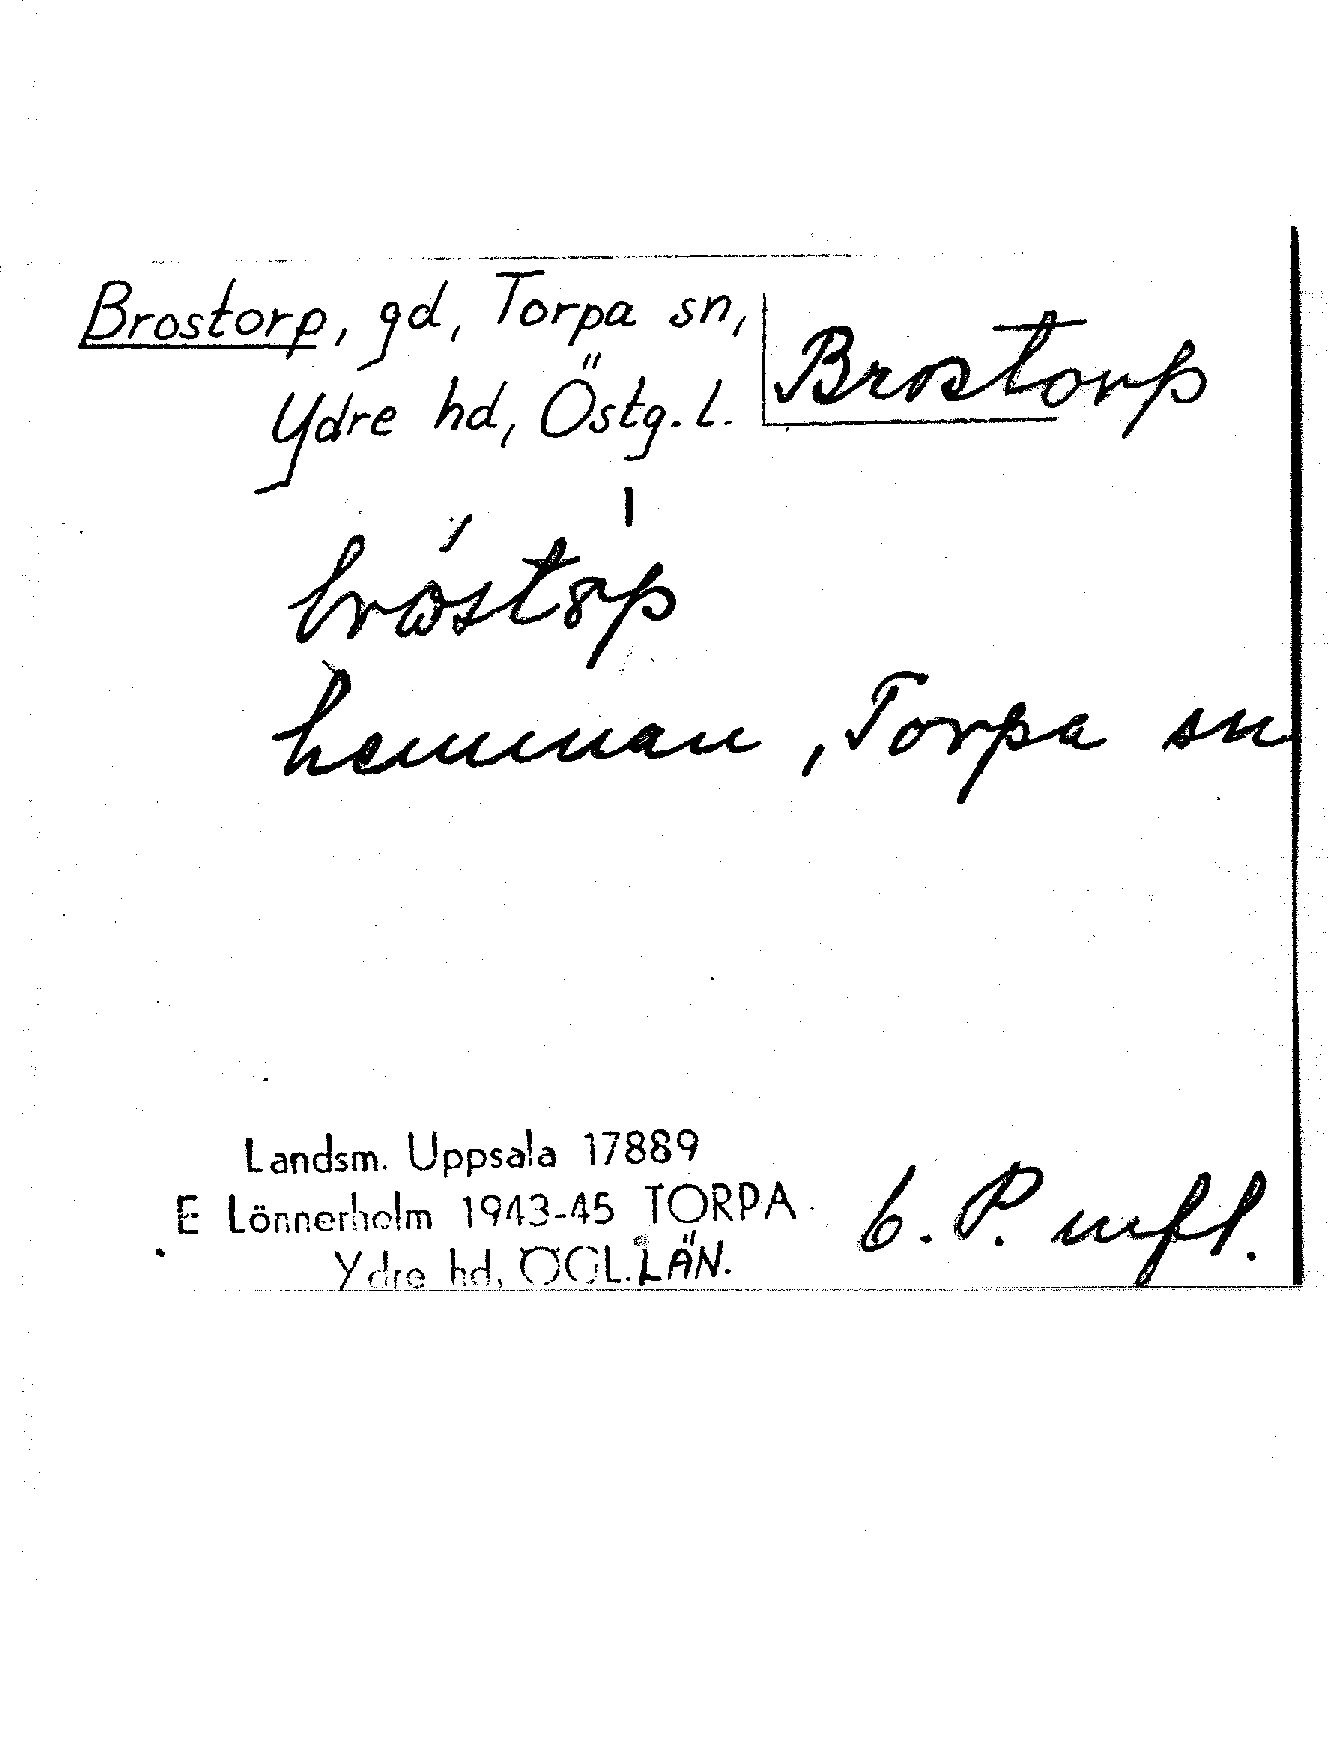 Brostorp, gd, Torpa sn,
Ydre hd, Östg. l.
Brostorp
hemman, Torpa sn
Landsm. Uppsala 17889
E Lönnerholm 1943-45 TORPA
Ydre hd, ÖGL. LÄN.
6. P. mfl.